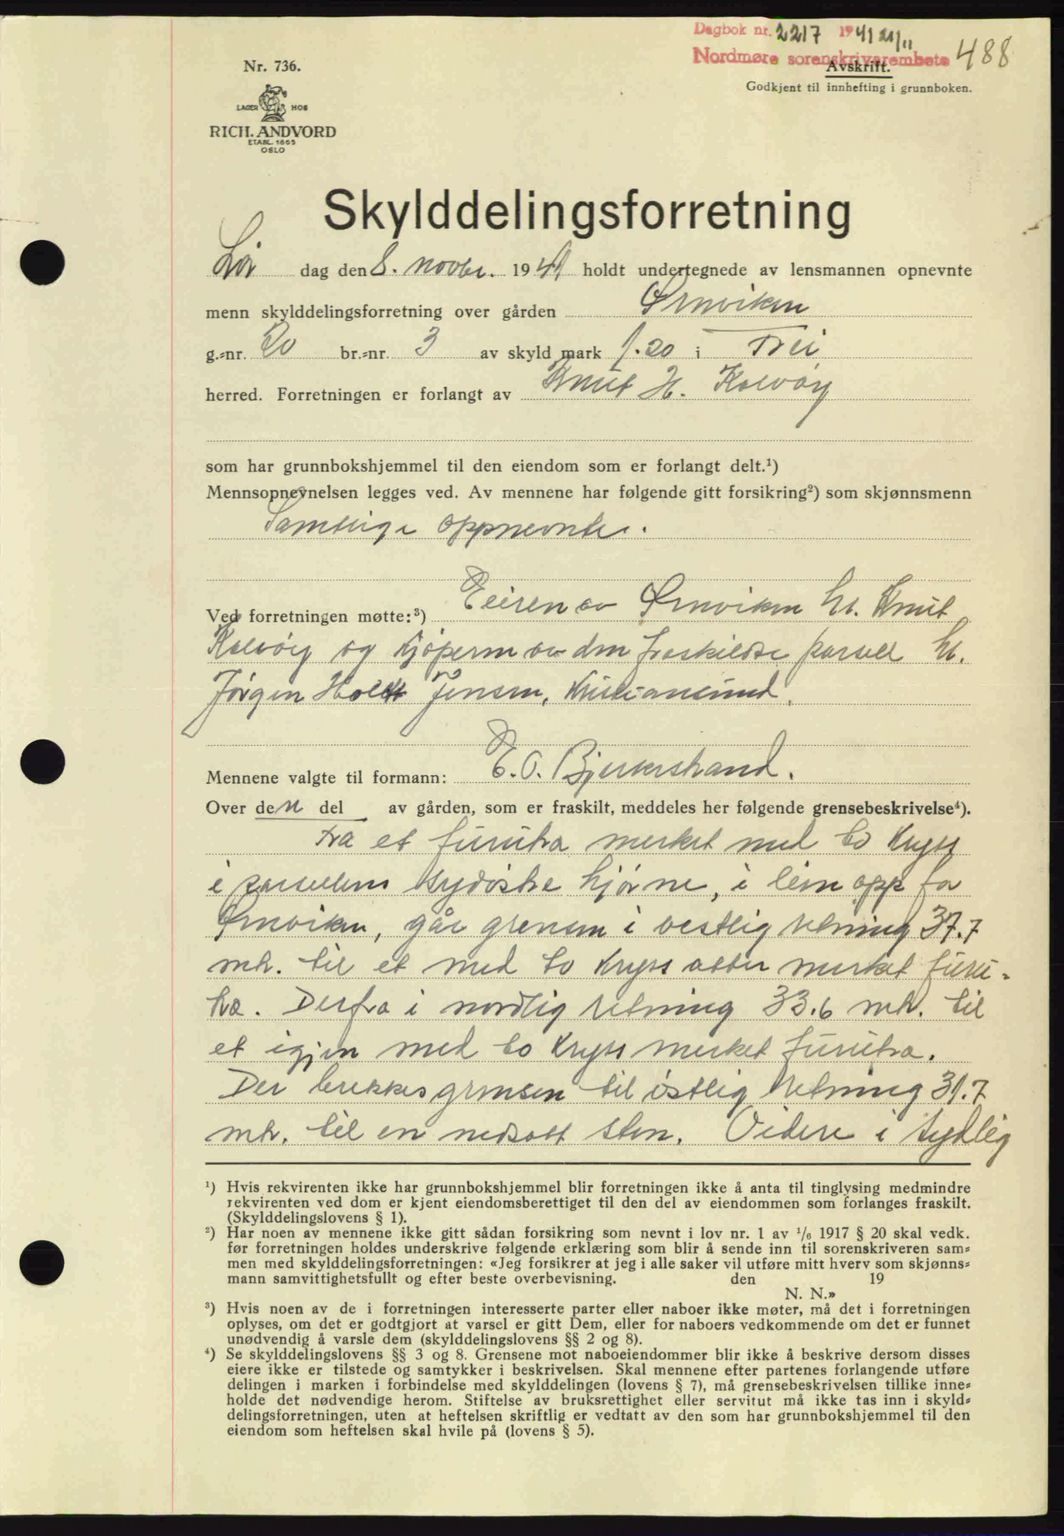 Dagbok nr. 2217 1941 21/11
Nordmøre sorenskrivarembete 488
Avskrift.
Godkjent til innhefting i grunnboken.
Nr. 736.
LAGER HOS
RICH. ANDVORD
ETABL. 1865
OSLO
Skylddelingsforretning
Lør dag den 8. novbr. 1941 holdt undertegnede av lensmannen opnevnte
menn skylddelingsforretning over gården Ørnviken
g.-nr. 20 br.-nr. 3 av skyld mark 1.20 i Frei
herred. Forretningen er forlangt av Knut H. Kolvåg
som har grunnbokshjemmel til den eiendom som er forlangt delt.¹)
Mennsopnevnelsen legges ved. Av mennene har følgende gitt forsikring²) som skjønnsmenn
Samtlige oppnevnte.
Ved forretningen møtte:³) Eieren av Ørnviken hr. Knut
Kolvåg og kjøperen av den fraskildte parsell hr.
Jørgen Holck Jensen, Kristiansund.
Mennene valgte til formann: E. O. Bjerkestrand.
Over den del av gården, som er fraskilt, meddeles her følgende grensebeskrivelse⁴).
Fra et furutre merket med to kryss
i parsellens sydøstre hjørne, i leien opp fra
Ørnviken, går grensen i vestlig retning 37.7
mtr. til et med to kryss atter merket furu-
tre. Derfra i nordlig retning 33.6 mtr. til
et igjen med to kryss merket furutre.
Der brekkes grensen til østlig retning 31.7
mtr. til en nedsatt sten. Videre i sydlig
¹) Hvis rekvirenten ikke har grunnbokshjemmel blir forretningen ikke å anta til tinglysing medmindre
rekvirenten ved dom er kjent eiendomsberettiget til den del av eiendommen som forlanges fraskilt.
(Skylddelingslovens § 1).
²) Har noen av mennene ikke gitt sådan forsikring som nevnt i lov nr. 1 av ¹/₆ 1917 § 20 skal vedk.
før forretningen holdes underskrive følgende erklæring som blir å sende inn til sorenskriveren sam-
men med skylddelingsforretningen: «Jeg forsikrer at jeg i alle saker vil utføre mitt hverv som skjønns-
mann samvittighetsfullt og efter beste overbevisning. den 19
N. N.»
³) Hvis noen av de i forretningen interesserte parter eller naboer ikke møter, må det i forretningen
oplyses, om det er godtgjort at varsel er gitt Dem, eller for naboers vedkommende om det er funnet
unødvendig å varsle dem (skylddelingslovens §§ 2 og 8).
⁴) Se skylddelingslovens §§ 3 og 8. Grensene mot naboeiendommer blir ikke å beskrive dersom disses
eiere ikke er tilstede og samtykker i beskrivelsen. Skal mennene efter partenes forlangende utføre
delingen i marken i forbindelse med skylddelingen (lovens § 7), må grensebeskrivelsen tillike inne-
holde det nødvendige herom. Stiftelse av bruksrettighet eller servitut må ikke tas inn i skyld-
delingsforretningen, uten at heftelsen skriftlig er vedtatt av den som har grunnbokshjemmel til den
eiendom som heftelsen skal hvile på (lovens § 5).